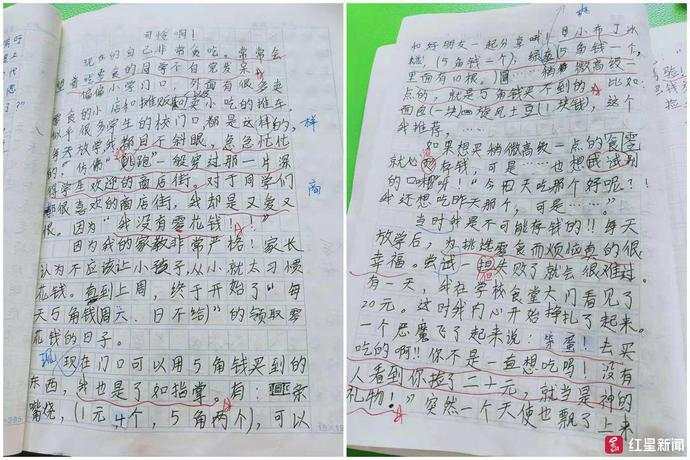 可怜啊!
现在的自己非常贪吃。常常会
望着吃零食的同学不自觉发呆。
偏偏小学门口,
零食的小店和摊贩卖小吃的推车,
似乎很多学生的校门口都是这样的,
样
每天放学我都目不斜视,急色忙忙
的“仿佛”“跳跑”一般穿过那一片深
得学生欢迎的商店街。对于同学们
商
都很喜欢的商店街,我却是又爱又
恨。因为“我没有零花钱!”
因为我的家教非常严格!家长
认为不应该让小孩子从小就太习惯
花钱。直到上周,终于开始了“每
天5角钱周六、日不给”的领取零
花钱的日子。
现在门口可以用5角钱买到的
东西,我也是了如指掌。有:
嘴烧,(1元4个,5角两个),可以
和好朋友一起分享哦!小布丁冰
糕,(5角钱一个),绿(5角钱一个,
里面有口很。)稍微高级一
点的,就是5角钱是不到的。比如
面包(一块)旋风土豆(1块钱),这个
我推荐,……
如果想买稍微高级一点的食零
就必须存钱,可是……也想试试别
的口味呀!“今明天吃那个好呢?!
我还想吃昨天那个,可是……。”
当时我是不可能存钱的!!每天
放学后,为挑选零食而烦恼真的很
幸福。尝试一但失败了就会很难过。
有一天,我在学校食堂大门看见了
20元。这时我内心开始挣扎了起来。
一个恶魔飞了起来说:笨蛋!去买
吃的啊!!你不是一直想吃吗!没有
人看到你捡了二十元,就当是神的
礼物!”突然一个天使也飘了上来
红星新闻